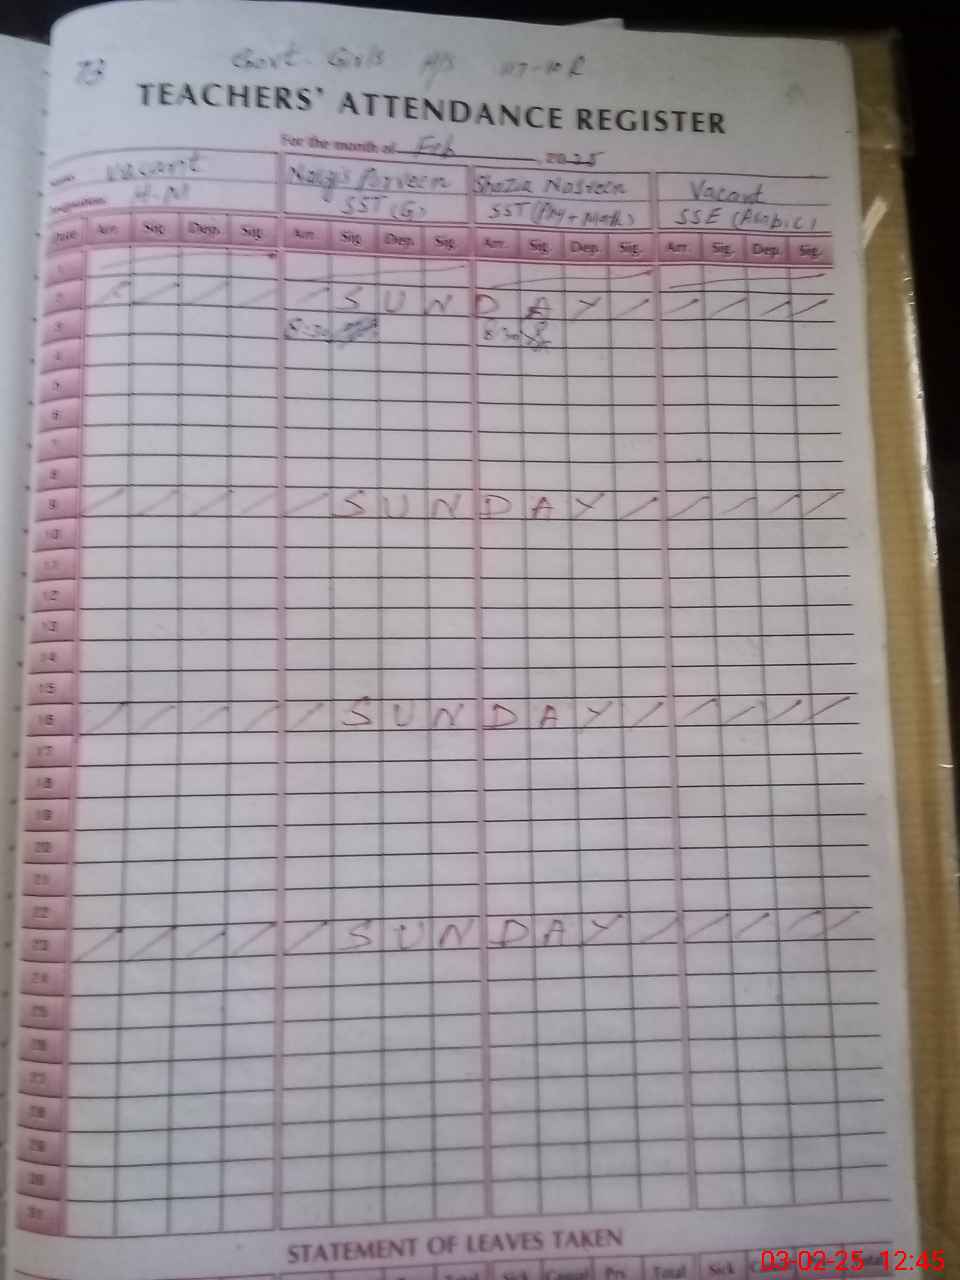 73 Govt. Girls H/S 117-10R
TEACHERS' ATTENDANCE REGISTER
For the month of Feb 2025
Name Vacant Nargis Parveen Shazia Nasreen Vacant
Designation H.M SST (G) SST (Phy + Math) SSE (Arabic)
Date Arr. Sig. Dep. Sig. Arr. Sig. Dep. Sig. Arr. Sig. Dep. Sig. Arr. Sig. Dep. Sig.
1
2 SUNDAY
3 8:30 8:30
4
5
6
7
8
9 SUNDAY
10
11
12
13
14
15
16 SUNDAY
17
18
19
20
21
22
23 SUNDAY
24
25
26
27
28
29
30
31
STATEMENT OF LEAVES TAKEN
Total Sick Casual Prv. Total Sick Total
03-02-25 12:45